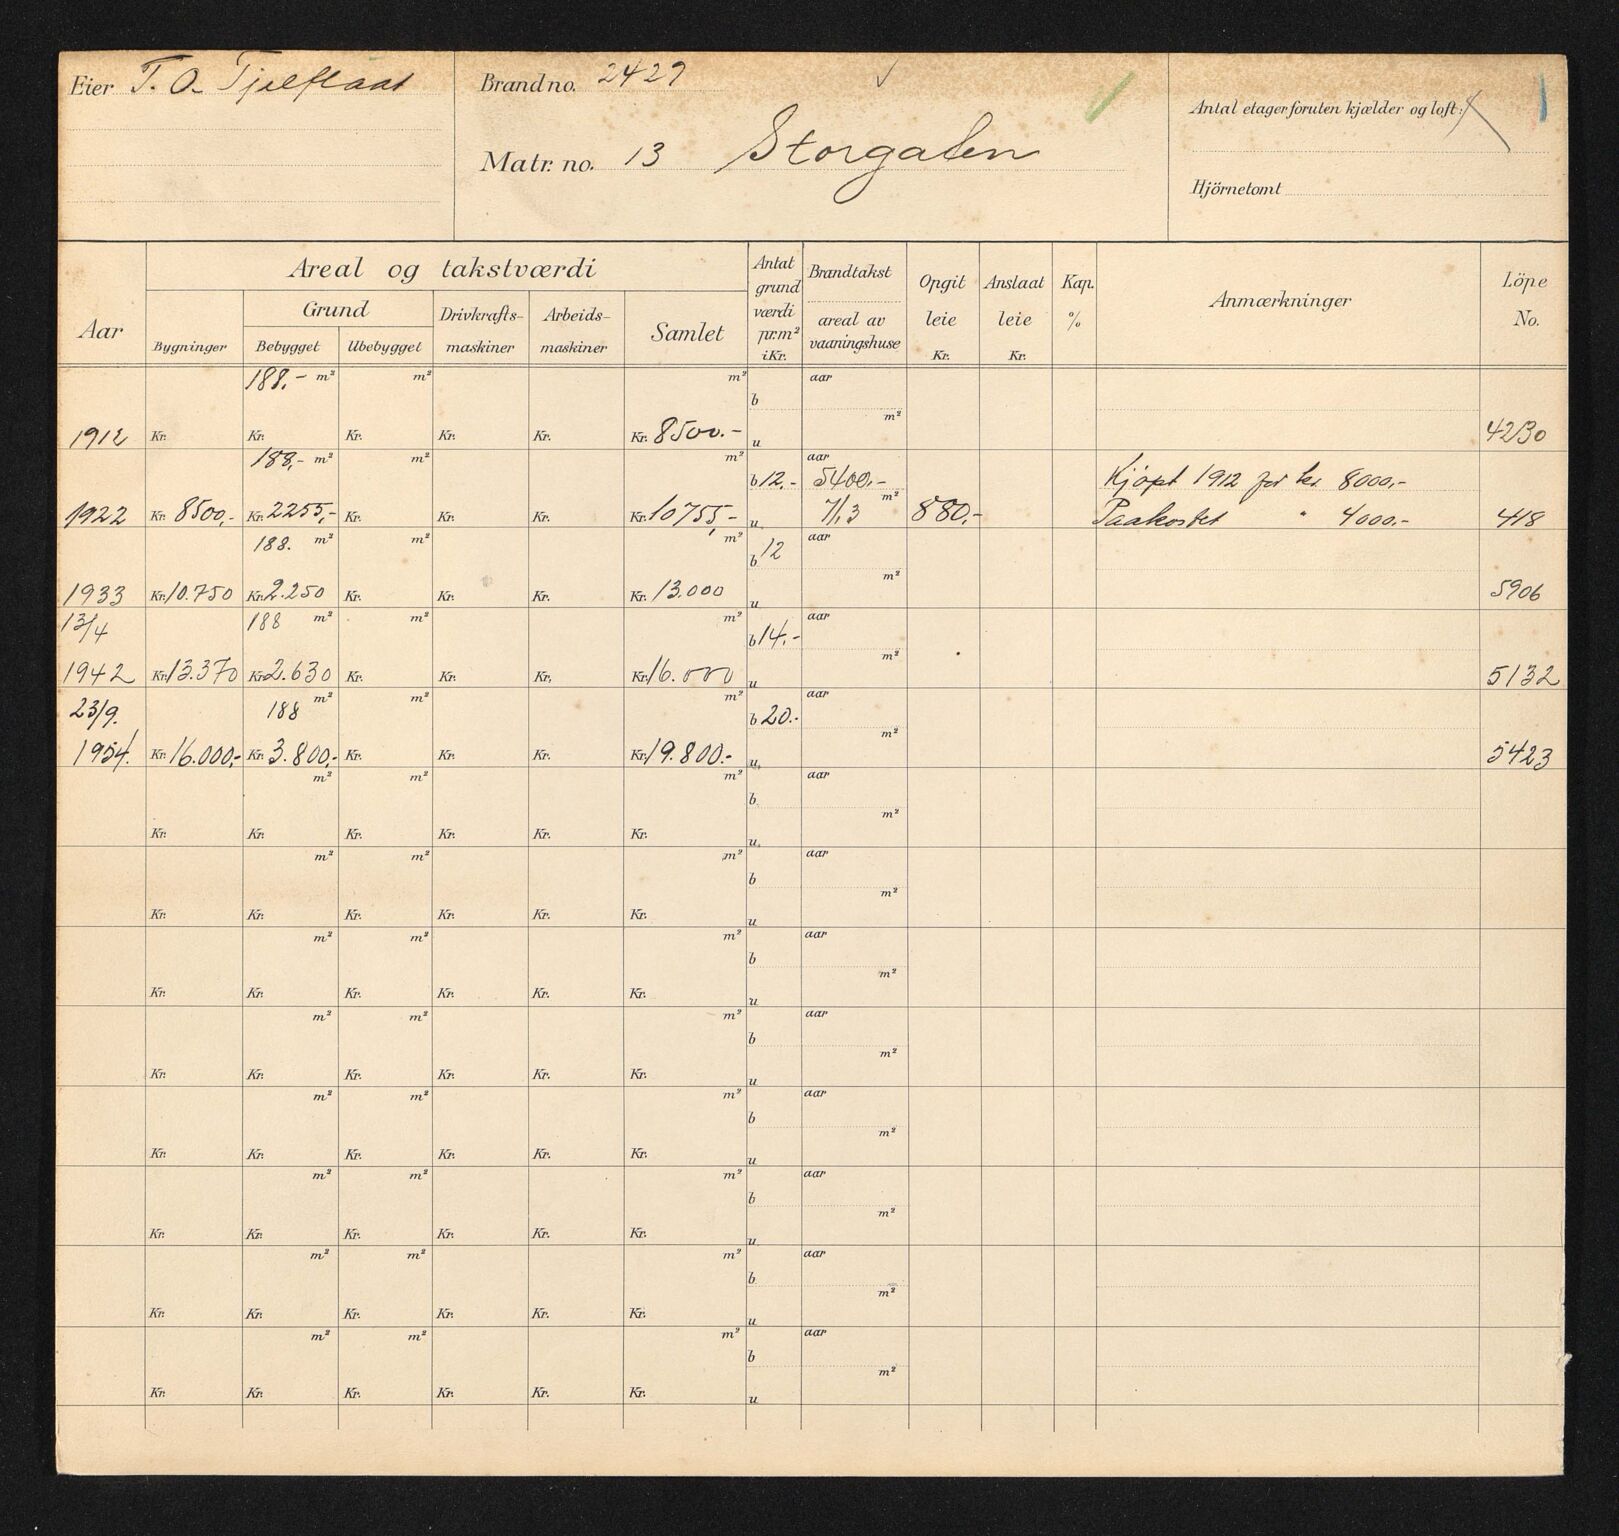 Eier T. O. Tjelflaat
Brandno. 2429
Matr. no. 13 Storgaten
Antal etager foruten kjælder og loft:
Hjörnetomt
Aar
Areal og takstværdi
Grund
Bygninger Bebygget Ubebygget Drivkrafts-maskiner Arbeids-maskiner Samlet
Antat grund værdi pr. m² i Kr.
Brandtakst
areal av vaaningshuse
Opgit leie Kr.
Anslaat leie Kr.
Kap. %
Anmærkninger
Löpe No.
188.- m² m² m² aar
b m²
1912 Kr. Kr. Kr. Kr. Kr. Kr. 8500.- u 4230
188,- m² m² m² aar
b 12.- 5400.- m² Kjöpt 1912 for kr. 8000,-
1922 Kr. 8500,- Kr. 2255,- Kr. Kr. Kr. Kr. 10755,- u 71,3 880,- Paakostet " 4000.- 418
188. m² m² m² aar
b 12 m²
1933 Kr. 10.750 Kr. 2.250 Kr. Kr. Kr. Kr. 13.000 u 5906
13/4 188 m² m² m² aar
b 14.- m²
1942 Kr. 13.370 Kr. 2.630 Kr. Kr. Kr. Kr. 16.000 u 5132
23/9. 188 m² m² m² aar
b 20.- m²
1954. Kr. 16.000,- Kr. 3.800,- Kr. Kr. Kr. Kr. 19.800.- u 5423
m² m² m² aar
b m²
Kr. Kr. Kr. Kr. Kr. Kr. u
m² m² m² aar
b m²
Kr. Kr. Kr. Kr. Kr. Kr. u
m² m² m² aar
b m²
Kr. Kr. Kr. Kr. Kr. Kr. u
m² m² m² aar
b m²
Kr. Kr. Kr. Kr. Kr. Kr. u
m² m² m² aar
b m²
Kr. Kr. Kr. Kr. Kr. Kr. u
m² m² m² aar
b m²
Kr. Kr. Kr. Kr. Kr. Kr. u
m² m² m² aar
b m²
Kr. Kr. Kr. Kr. Kr. Kr. u
m² m² m² aar
b m²
Kr. Kr. Kr. Kr. Kr. Kr. u